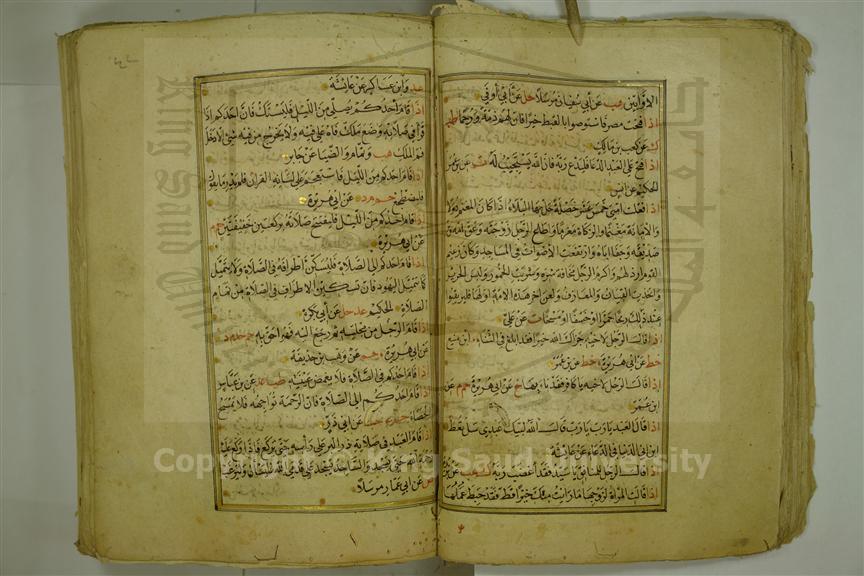 الاوابين هب عن ابي سفيان مرسلا حل عن ابي اوفى
اذا فتحت مصر فاستوصوا بالقبط خيرا فان لهم ذمة ورحما طب
ك عن كعب بن مالك
اذا فتح على العبد الدعاء فليدع ربه فان الله يستجيب له عن
الحكيم عن انس
اذا فعلت امتي خمس عشرة خصلة حل بها البلاء اذا كان المغنم دولا
والامانة مغنما والزكاة مغرما واطاع الرجل زوجته وعق امه وبر
صديقه وجفا اباه وارتفعت الاصوات في المساجد وكان زعيم
القوم ارذلهم واكرم الرجل مخافة شره وشربت الخمور ولبس الحرير
واتخذت القينات والمعازف ولعن اخر هذه الامة اولها فليرتقبوا
عند ذلك ريحا حمراء او خسفا او مسخا ت عن علي
اذا قال الرجل لاخيه جزاك الله خيرا فقد ابلغ في الثناء ابن منيع
خط عن ابي هريرة خط عن بن عمر
اذا قال الرجل لاخيه يا كافر فقد باء بها خ عن ابي هريرة حم عن
ابن عمر
اذا قال العبد يا رب يا رب قال الله لبيك عبدي سل تعط
ابن ابي الدنيا في الدعاء عن عائشة
اذا قال الرجل للمنافق يا سيد فقد اغضب ربه ك هب عن
اذا قالت المراة لزوجها ما رايت منك خيرا قط فقد حبط عملها
عد وابن عساكر عن عائشة
اذا قام احدكم يصلي من الليل فليستك فان احدكم اذا
قرا في صلاته وضع ملك فاه على فيه ولا يخرج من فيه شئ الا دخل
فم الملك هب وتمام والضيا عن جابر
اذا قام احدكم من الليل فاستعجم القران على لسانه فلم يدر ما يقول
فليضطجع حم م د عن ابي هريرة
اذا قام احدكم من الليل فليفتتح صلاته بركعتين خفيفتين حم م
عن ابي هريرة
اذا قام احدكم الى الصلاة فليسكن اطرافه في الصلاة ولا يتميل
كما تتميل اليهود فان تسكين الاطراف في الصلاة من تمام
الصلاة الحكيم عد حل عن ابي بكر
اذا قام الرجل من مجلسه ثم رجع اليه فهو احق به حم خد م د
عن ابي هريرة حم عن وهب بن حذيفة
اذا قام احدكم في الصلاة فلا يغمض عينيه طب عد عن بن عباس
اذا قام احدكم الى الصلاة فان الرحمة تواجهه فلا يمسح
الحصا عن ابي ذر
اذا قام العبد في صلاته ذر البر على راسه حتى يركع فاذا ركع علته
رحمة الله حتى يسجد والساجد يسجد على قدمي الله فليسال وليرغب
ص عن ابي عمار مرسلا
Copyright © King Saud University